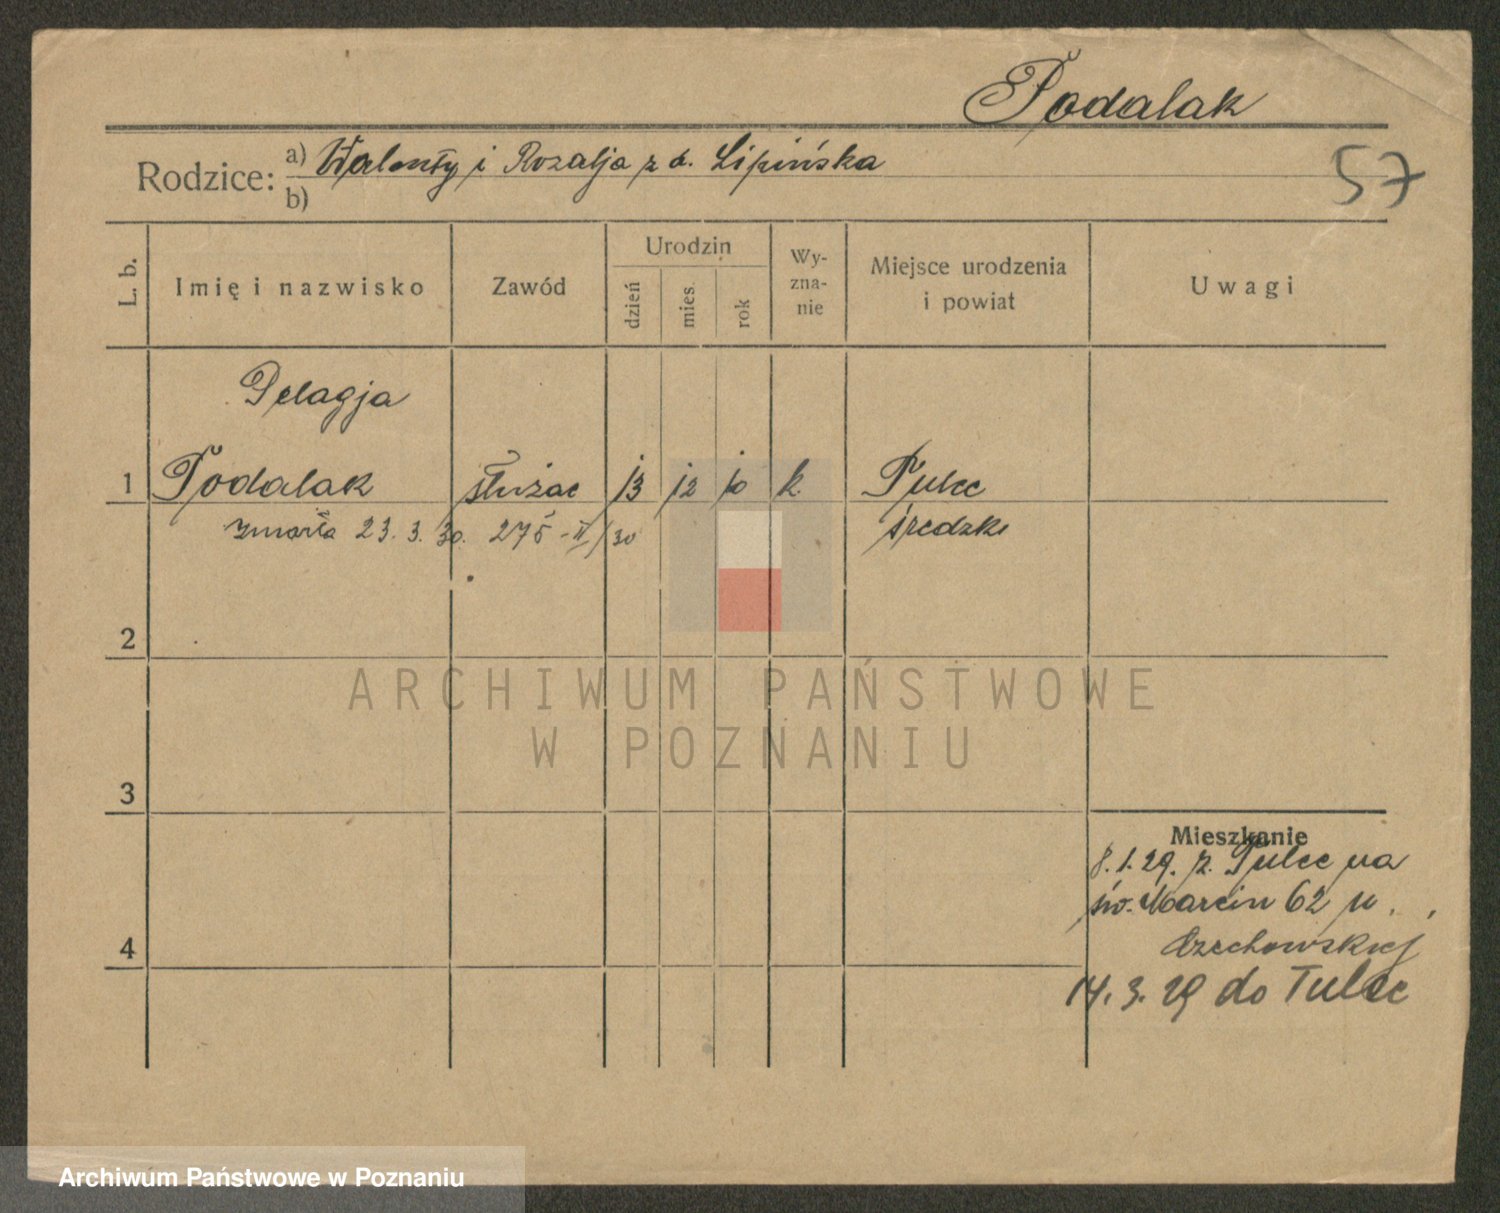 Podalak
Rodzice: a) Walenty i Rozalja z d. Lipińska
b)
57
L. b.
Imię i nazwisko
Zawód
Urodzin
dzień
mies.
rok
Wy-
zna-
nie
Miejsce urodzenia
i powiat
Uwagi
Pelagja
1 Podalak służąc 13 12 10 k. Tulce
zmarła 23. 3. 30. 275-II/30 średzki
2
ARCHIWUM PAŃSTWOWE
W POZNANIU
3
Mieszkanie
8.1.29. z Tulec na
św. Marcin 62 u.
Czechowskiej
4
14. 3. 29 do Tulec
Archiwum Państwowe w Poznaniu